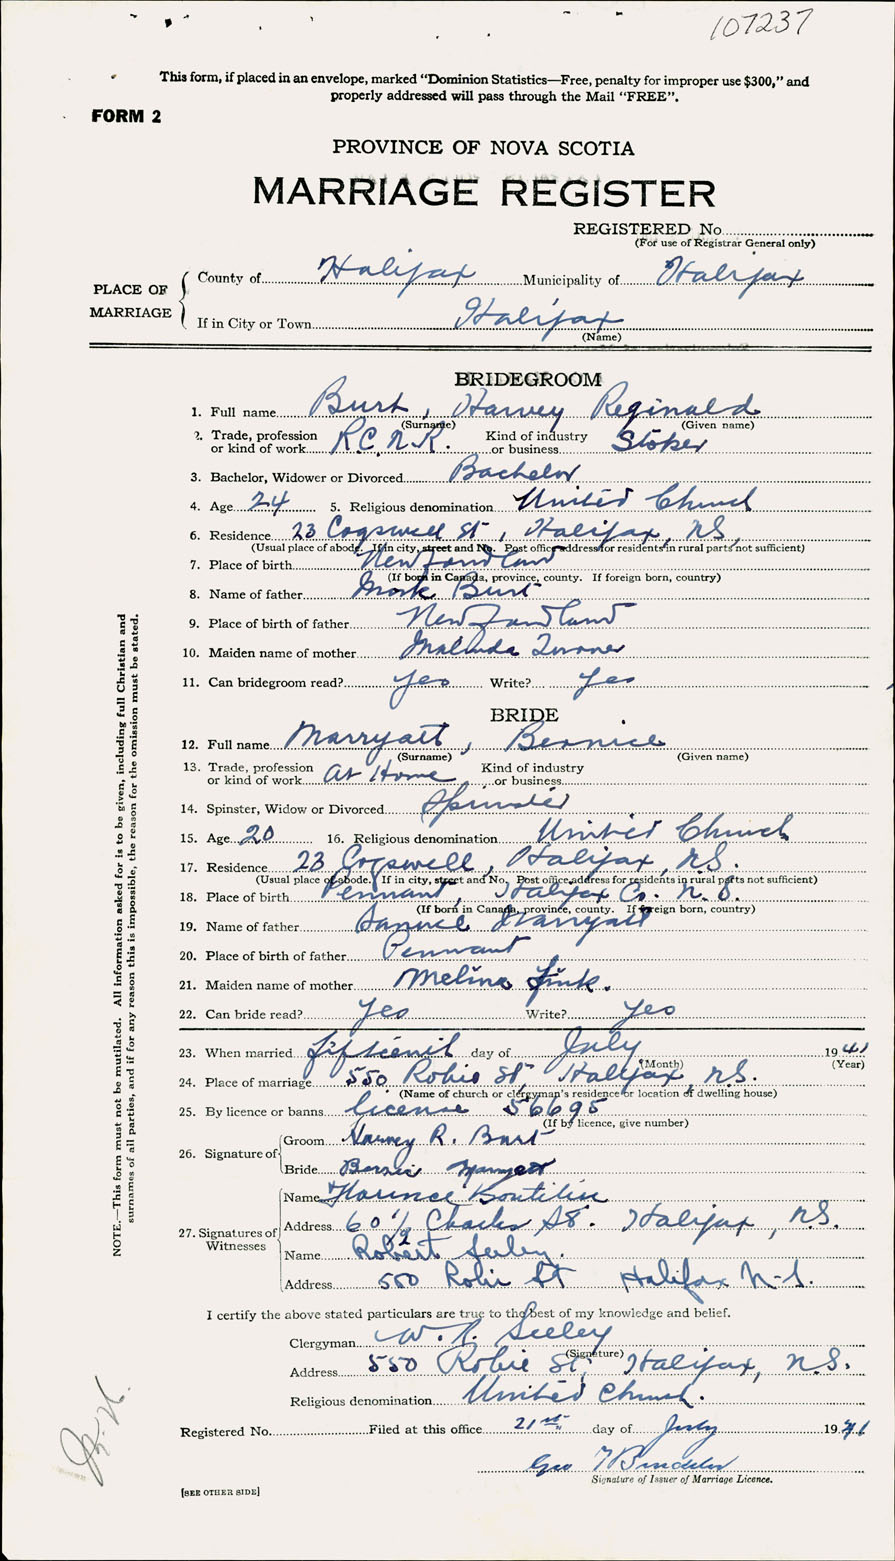 107237
This form, if placed in an envelope, marked "Dominion Statistics—Free, penalty for improper use $300," and
properly addressed will pass through the Mail "FREE".
FORM 2
PROVINCE OF NOVA SCOTIA
MARRIAGE REGISTER
REGISTERED No.
(For use of Registrar General only)
PLACE OF MARRIAGE
County of Halifax Municipality of Halifax
If in City or Town Halifax
(Name)
BRIDEGROOM
1. Full name Burt, Harvey Reginald
(Surname) (Given name)
2. Trade, profession or kind of work R.C.N.R. Kind of industry or business Stoker
3. Bachelor, Widower or Divorced Bachelor
4. Age 24 5. Religious denomination United Church
6. Residence 23 Cogswell St, Halifax, N.S.
(Usual place of abode. If in city, street and No. Post office address for residents in rural parts not sufficient)
7. Place of birth Newfoundland
(If born in Canada, province, county. If foreign born, country)
8. Name of father Mark Burt
9. Place of birth of father Newfoundland
10. Maiden name of mother Malinda Turner
11. Can bridegroom read? Yes Write? Yes
BRIDE
12. Full name Marryatt, Bernice
(Surname) (Given name)
13. Trade, profession or kind of work At Home Kind of industry or business
14. Spinster, Widow or Divorced Spinster
15. Age 20 16. Religious denomination United Church
17. Residence 23 Cogswell, Halifax, N.S.
(Usual place of abode. If in city, street and No. Post office address for residents in rural parts not sufficient)
18. Place of birth Pennant, Halifax Co. N.S.
(If born in Canada, province, county. If foreign born, country)
19. Name of father Samuel Marryatt
20. Place of birth of father Pennant
21. Maiden name of mother Melina Fink.
22. Can bride read? Yes Write? Yes
23. When married fifteenth day of July 1941
(Month) (Year)
24. Place of marriage 550 Robie St, Halifax, N.S.
(Name of church or clergyman's residence or location of dwelling house)
25. By licence or banns license 56695
(If by licence, give number)
26. Signature of
Groom Harvey R. Burt
Bride Bernice Marryatt
27. Signatures of Witnesses
Name Florence Boutilier
Address 60 1/2 Charles St. Halifax, N.S.
Name Robert Seeley.
Address 550 Robie St Halifax N-S.
I certify the above stated particulars are true to the best of my knowledge and belief.
Clergyman W. R. Seeley
(Signature)
Address 550 Robie St, Halifax, N.S.
Religious denomination United Church.
Registered No. Filed at this office 21st day of July 1941
Geo
Signature of Issuer of Marriage Licence.
[SEE OTHER SIDE]
NOTE.—This form must not be mutilated. All information asked for is to be given, including full Christian and
surnames of all parties, and if for any reason this is impossible, the reason for the omission must be stated.